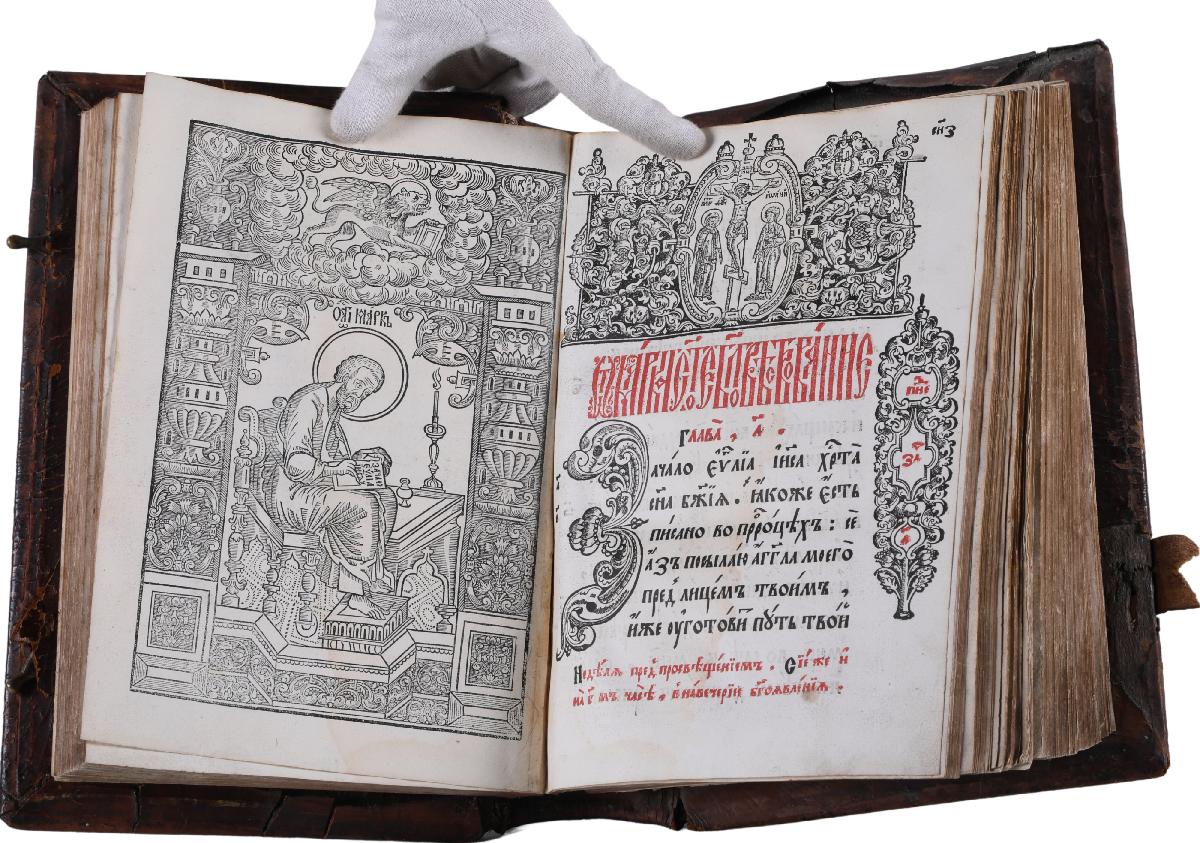 ст҃ы маркъ
Ѿ ма́рка ст҃о́е бл҃говѣствова́нїе
Глава̀, а҃ .
Зача́ло є҆ѵⷢ҇лїа і҆и҃са хрⷭ҇та̀
сн҃а бж҃їѧ . ꙗ҆́коже є҆́сть
пи́сано во прⷪ҇ро́цѣхъ : се̏
а҆́зъ посыла́ю а҆́гг҃ла моего̀
пред̾ лице́мъ твои́мъ ,
и҆́же ᲂу҆гото́витъ пꙋ́ть тво́й
Недѣ́лѧ пред̾ просвѣще́нїемъ . Сїе́ же и҆
на в҃ мъ часѣ̀ , в̾ навече́рїе бг҃оѧвле́нїѧ .